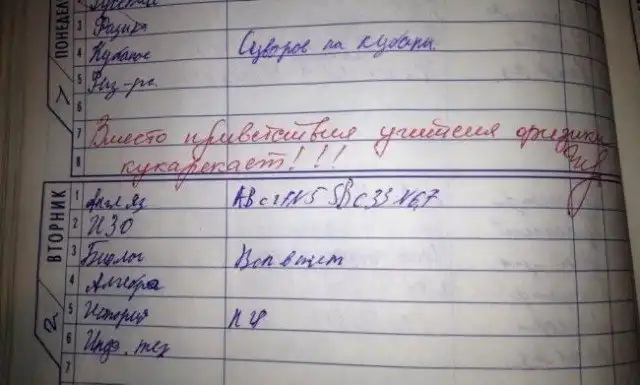 ПОНЕДЕЛ
3 Физика
4 Кубанов Суворов на кубани
5 Физ-ра
6
7 Вместо приветствия учителя физики
8 кукарекает!!!
ВТОРНИК
1 Англ яз АВ с27N5 5В С33 N6,7
2 ИЗО
3 Биолог Всп в тет
4 Алгебра
5 История п 4
6 Инф. тех
7
2